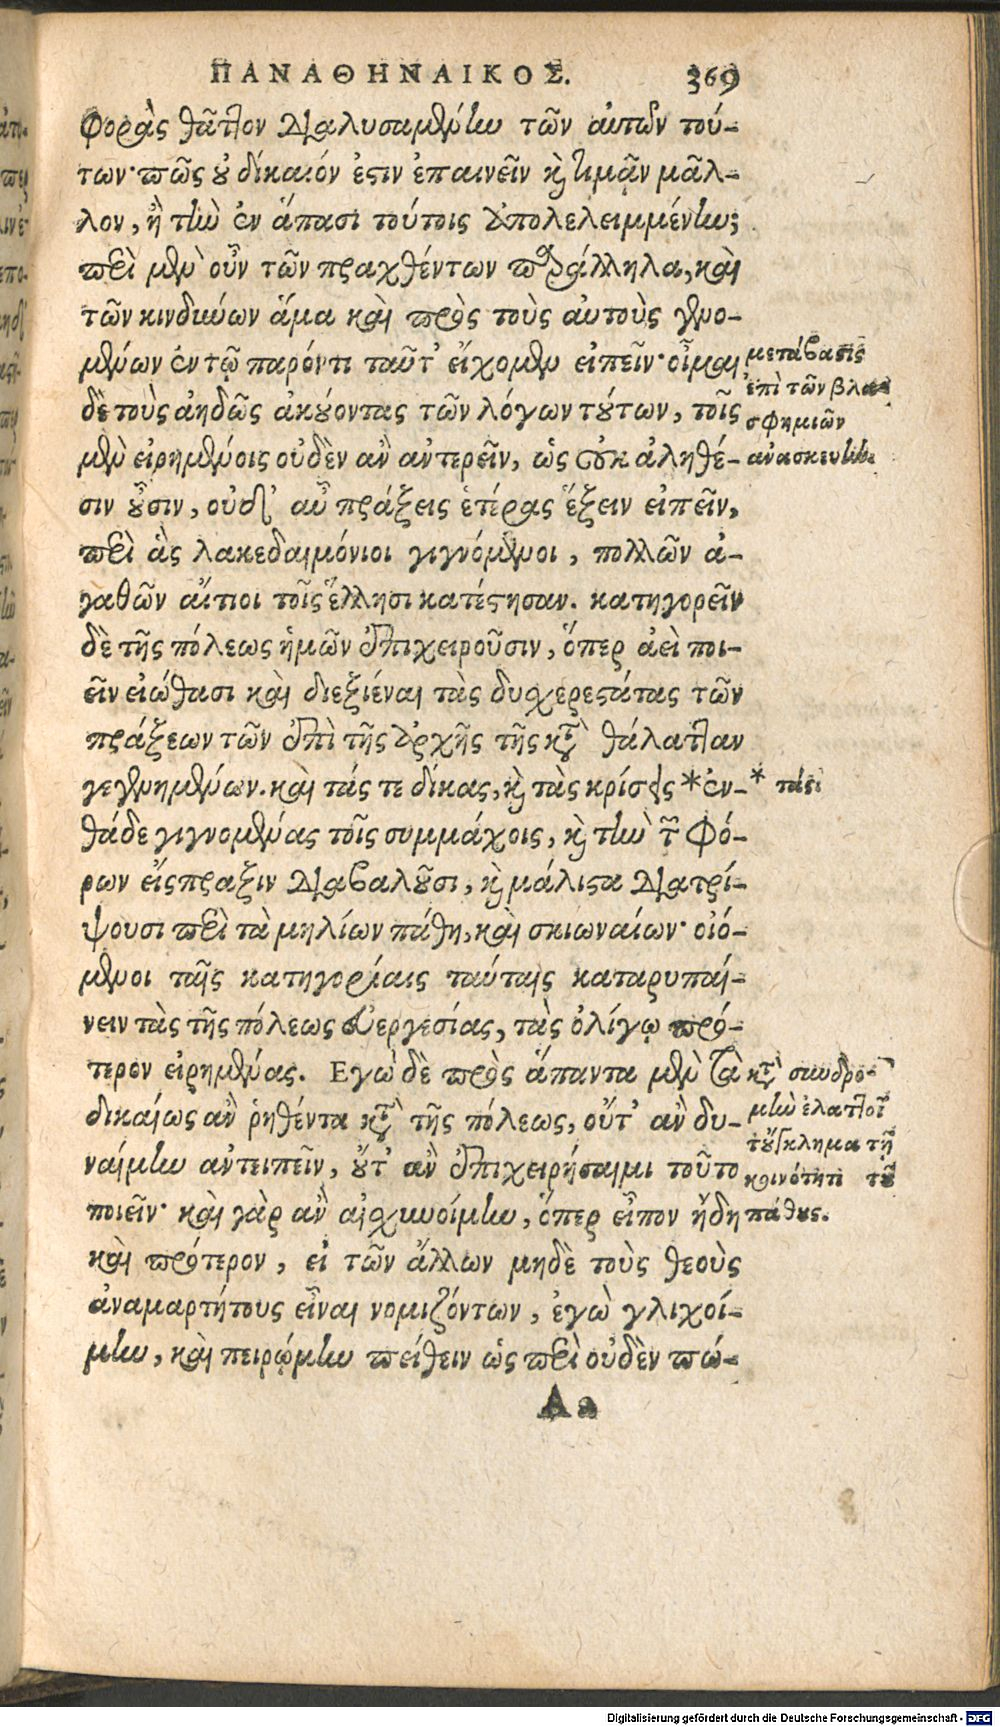 ΠΑΝΑΘΗΝΑΙΚΟΣ. 369
φορὰς θᾶττον διαλυσαμένην τῶν αὐτῶν τού-
των· πῶς οὐ δίκαιόν ἐστιν ἐπαινεῖν καὶ τιμᾷν μᾶλ-
λον, ἢ τὴν ἐν ἅπασι τούτοις ὑπολελειμμένην;
περὶ μὲν οὖν τῶν πραχθέντων παράλληλα, καὶ
τῶν κινδύνων ἅμα καὶ πρὸς τοὺς αὐτοὺς γενο-
μένων ἐν τῷ παρόντι ταῦτ' εἴχομεν εἰπεῖν· οἶμαι
δὲ τοὺς ἀηδῶς ἀκούοντας τῶν λόγων τούτων, τοῖς
μὲν εἰρημένοις οὐδὲν ἂν ἀντερεῖν, ὡς οὐκ ἀληθέ-
σιν οὖσιν, οὐδ' αὖ πράξεις ἑτέρας ἕξειν εἰπεῖν,
περὶ ἃς λακεδαιμόνιοι γιγνόμενοι, πολλῶν ἀ-
γαθῶν αἴτιοι τοῖς ἕλλησι κατέστησαν. κατηγορεῖν
δὲ τῆς πόλεως ἡμῶν ἐπιχειροῦσιν, ὅπερ ἀεὶ ποι-
εῖν εἰώθασι καὶ διεξιέναι τὰς δυχερεστάτας τῶν
πράξεων τῶν ἐπὶ τῆς ἀρχῆς τῆς κατὰ θάλατταν
γεγενημένων. καὶ τάς τε δίκας, καὶ τὰς κρίσεις * ἐν-
θάδε γιγνομένας τοῖς συμμάχοις, καὶ τὴν τῶν φό-
ρων εἴσπραξιν διαβαλοῦσι, καὶ μάλιστα διατρί-
ψουσι περὶ τὰ μηλίων πάθη, καὶ σκιωναίων· οἰό-
μενοι ταῖς κατηγορίαις ταύταις καταρυπαί-
νειν τὰς τῆς πόλεως εὐεργεσίας, τὰς ὀλίγῳ πρό-
τερον εἰρημένας. Εγὼ δὲ πρὸς ἅπαντα μὲν τὰ
δικαίως ἂν ῥηθέντα κατὰ τῆς πόλεως, οὔτ' ἂν δυ-
ναίμην ἀντειπεῖν, οὔτ' ἂν ἐπιχειρήσαιμι τοῦτο
ποιεῖν· καὶ γὰρ ἂν αἰσχυνοίμην, ὅπερ εἶπον ἤδη
καὶ πρότερον, εἰ τῶν ἄλλων μηδὲ τοὺς θεοὺς
ἀναμαρτήτους εἶναι νομιζόντων, ἐγὼ γλιχοί-
μην, καὶ πειρῴμην πείθειν ὡς περὶ οὐδὲν πώ-
Aa
μετάβασις
ἐπὶ τῶν βλα
σφημιῶν
ἀνασκευὴν.
* τάς
κατὰ συνδρο-
μὴν ἐλαττοῖ
τοὔγκλημα τῇ
κοινότητι τοῦ
πάθους.
Digitalisierung gefördert durch die Deutsche Forschungsgemeinschaft - DFG